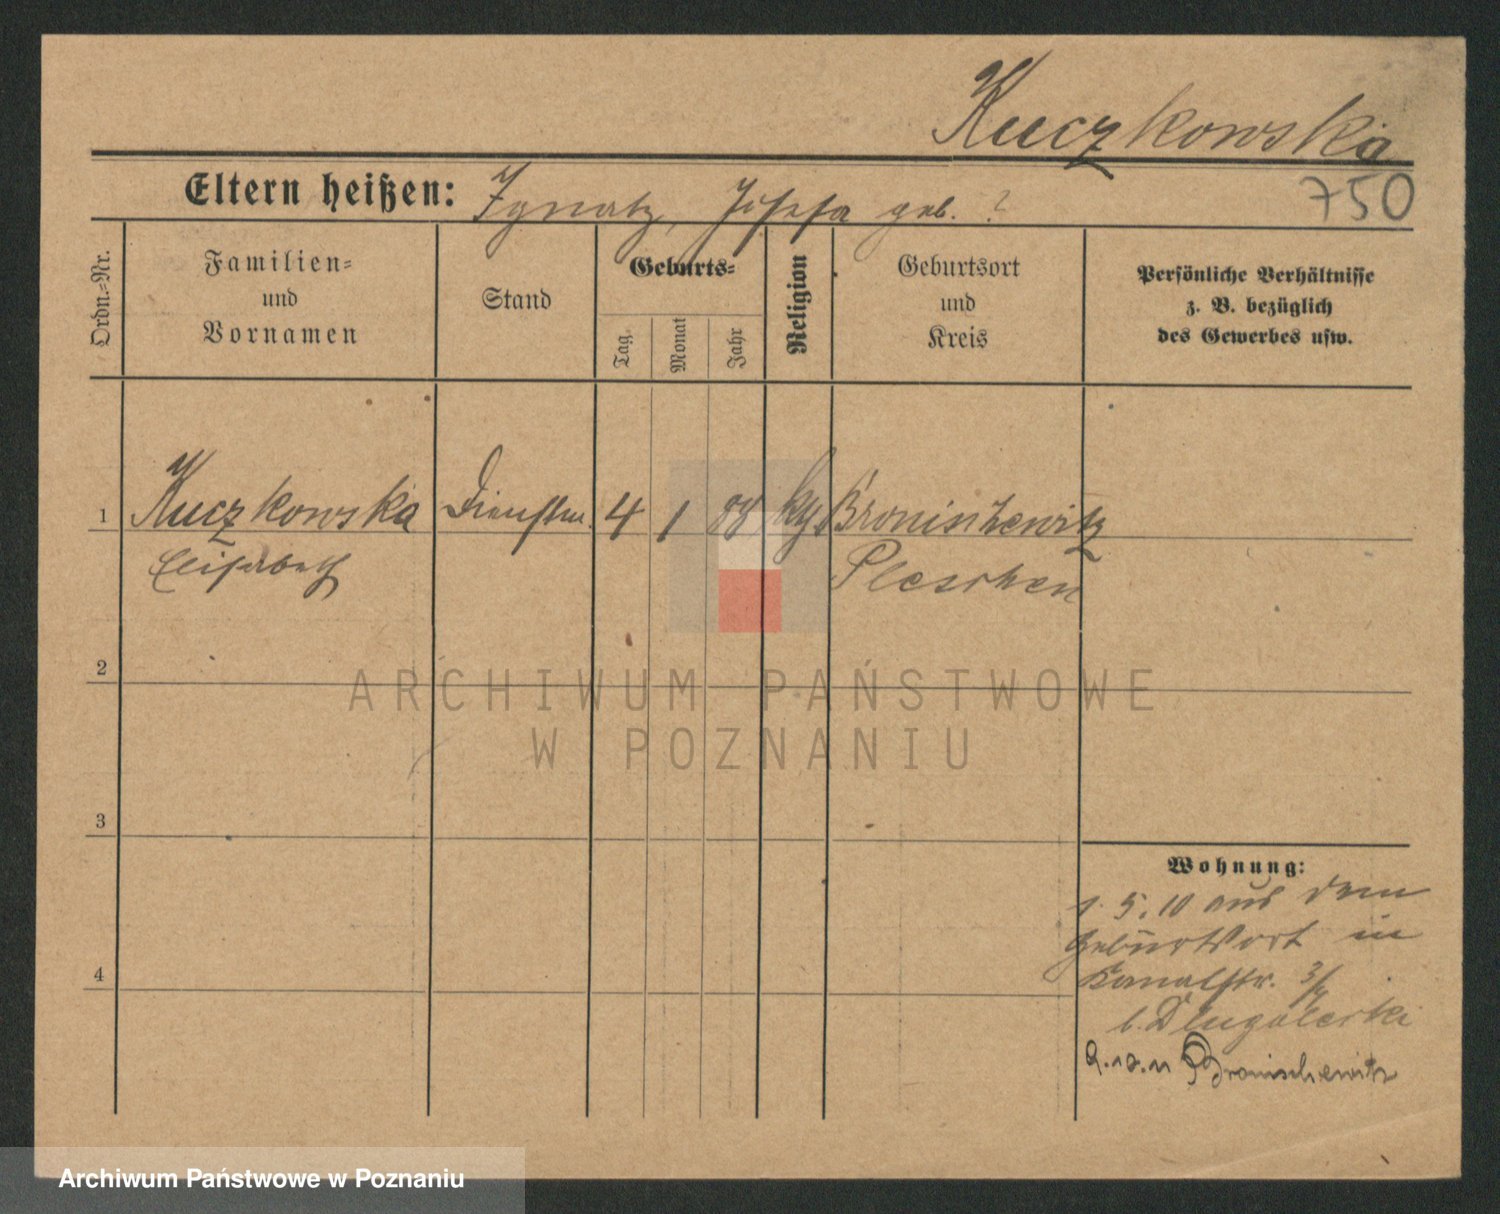 Kuczkowska
750
Eltern heißen: Ignatz, Josefa geb. ?
Ordn.-Nr.
Familien-
und
Vornamen
Stand
Geburts-
Tag
Monat
Jahr
Religion
Geburtsort
und
Kreis
Persönliche Verhältnisse
z. B. bezüglich
des Gewerbes usw.
1 Kuczkowska Dienstm. 4 1 88 kg Bronischewitz
Elisabeth Pleschen
2
3
4
Wohnung:
1.5.10 aus dem
Geburtsort in
Kanalstr. 3/4
b. Dlugolecki
Bronischewitz
ARCHIWUM PAŃSTWOWE
W POZNANIU
Archiwum Państwowe w Poznaniu